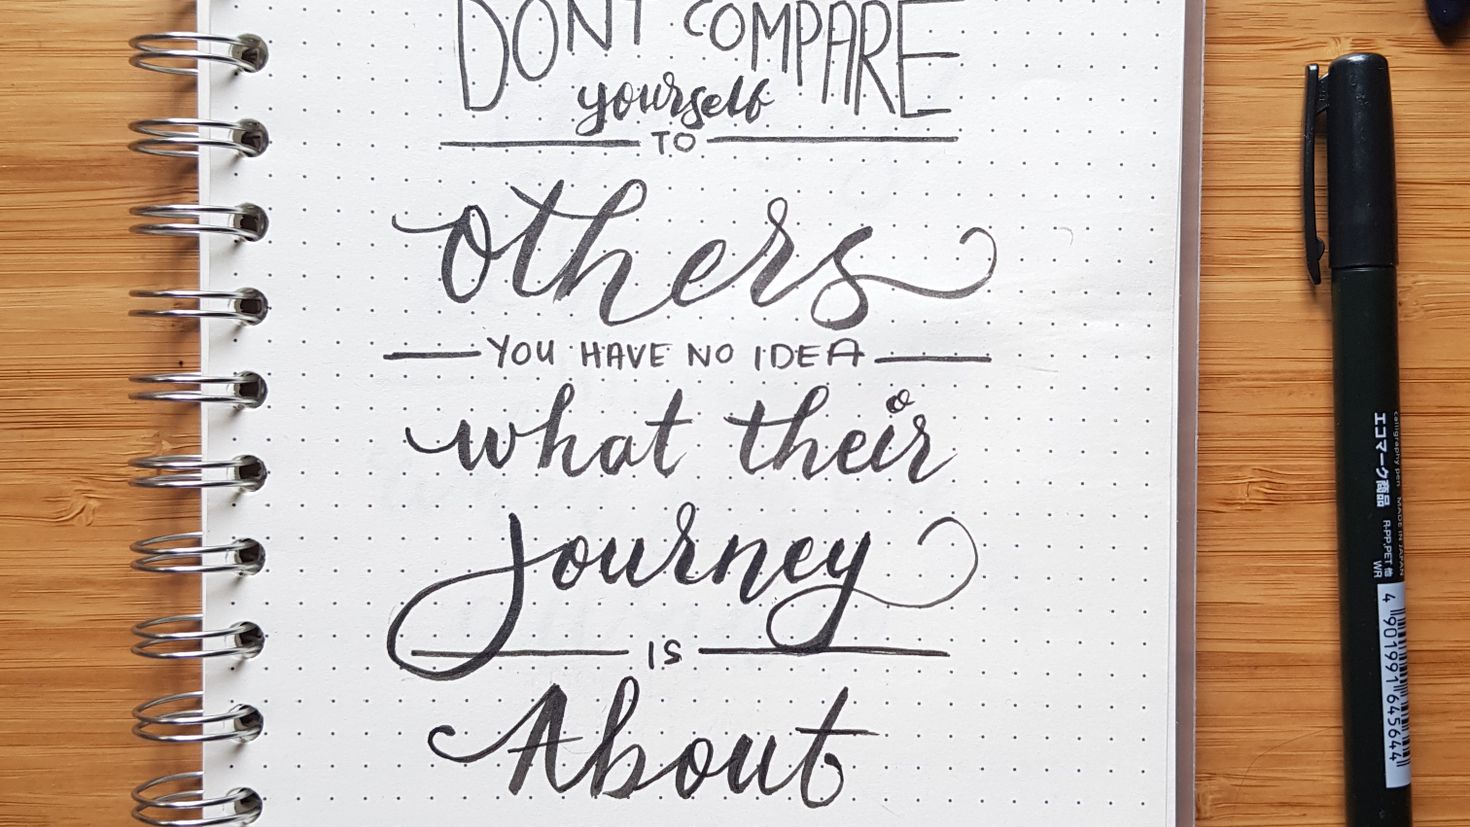 DONT COMPARE
yourself
TO
others
YOU HAVE NO IDEA
what their
journey
IS
About
calligraphy pen MADE IN JAPAN
エコマーク商品
R-PP,PET 他
WR
4 901991 645644